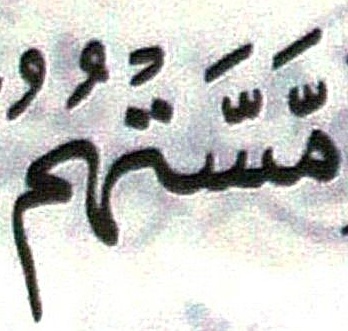 مَّسَّتْهُمُ